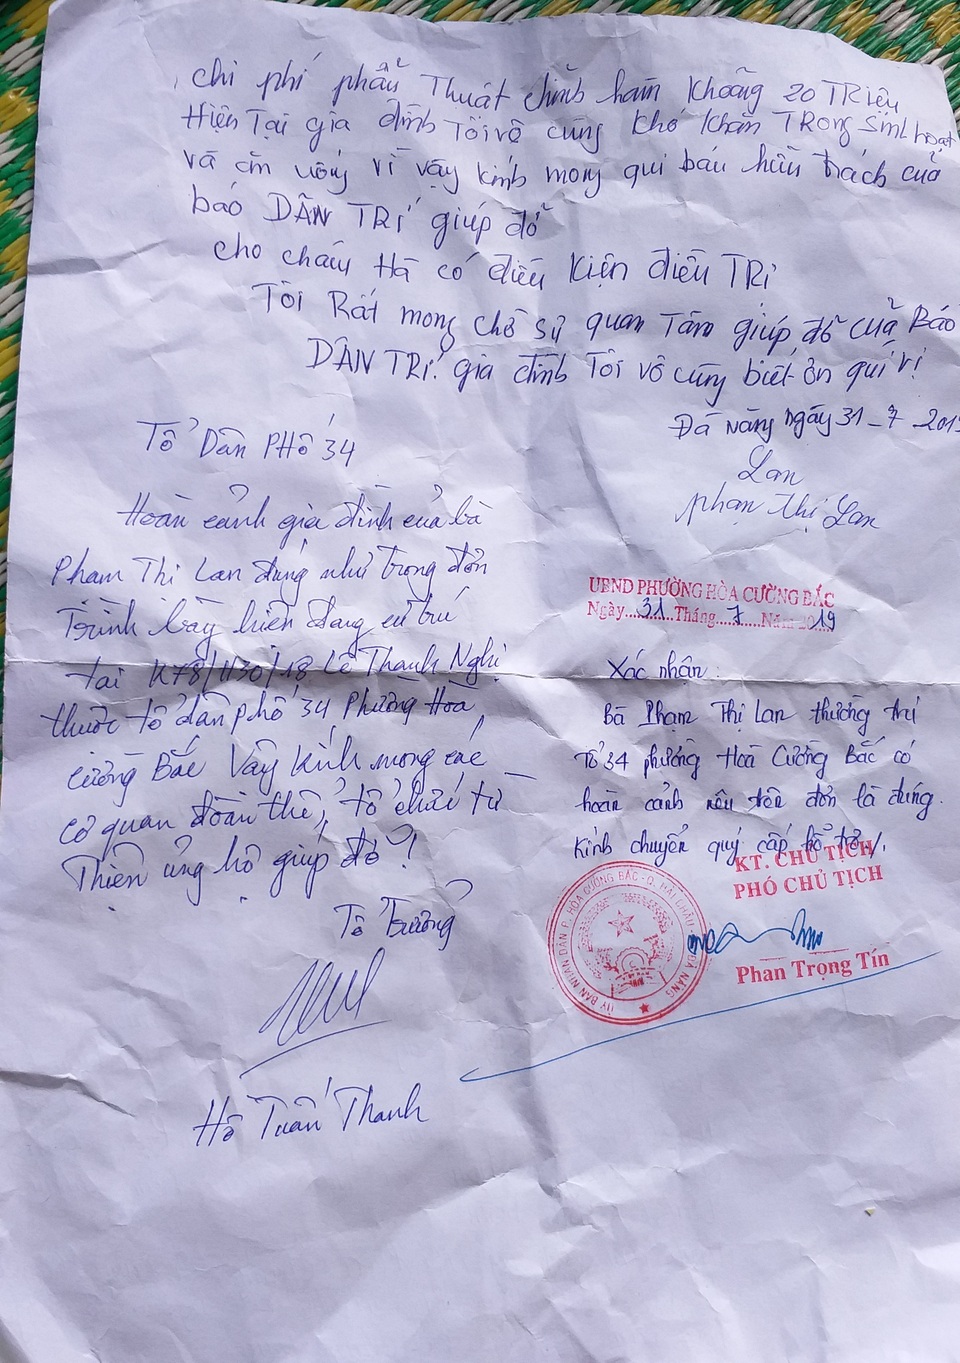 chi phí phẩu Thuật chỉnh hàm Khoảng 20 TRiệu
Hiện Tại gia đình Tôi vô cùng khó khăn TRong Sinh hoạt
và ăn uống vì vậy kính mong quí báu hữu trách của
báo DÂN TRÍ giúp đỡ
cho cháu Hà có điều kiện điều TRị
Tôi Rất mong chờ sự quan Tâm giúp đỡ của Báo
DÂN TRÍ. gia đình Tôi vô cùng biết ơn quí vị
Đà nẵng ngày 31 - 7 - 201
Lan
phạm Thị Lan
Tổ Dân PHố 34
Hoàn cảnh gia đình của bà
Phạm Thị Lan đúng như trong đơn
Trình bày hiện đang cư trú
tại K78/H30/18 Lê Thanh Nghị
thuộc tổ dân phố 34 Phường Hòa
Cường Bắc Vậy Kính mong các
cơ quan đoàn thể, tổ chức từ
Thiện ủng hộ giúp đỡ!
Tổ Trưởng
Hồ Tuấn Thanh
UBND PHƯỜNG HÒA CƯỜNG BẮC
Ngày...31...Tháng...7...Năm 2019
Xác nhận:
Bà Phạm Thị Lan thường trú
Tổ 34 phường Hoà Cường Bắc có
hoàn cảnh nêu trên đơn là đúng.
Kính chuyển quý cấp hỗ trợ/.
KT. CHỦ TỊCH
PHÓ CHỦ TỊCH
ỦY BAN NHÂN DÂN P. HÒA CƯỜNG BẮC - Q. HẢI CHÂU - TP ĐÀ NẴNG
Phan Trọng Tín